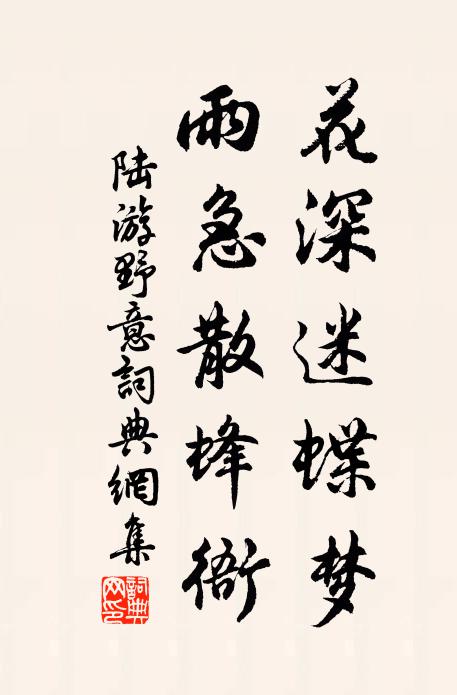 花深迷蝶梦
雨急散蜂衙
陆游野意詞典網集
詞典网印